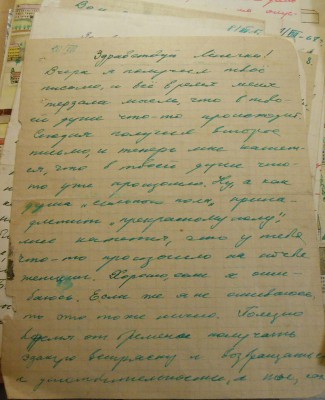 Здравствуй
Вчера я получил твоё
письмо, и всё время меня
терзала мысль, что в тво-
ей душе что-то происходит.
Сегодня получил второе
письмо, и теперь мне кажет-
ся, что в твоей душе что-
то уже произошло. Ну, а как
душа „сильного пола", прина-
длежит „прекрасному полу"!
мне кажется, что у тебя
что-то произошло на почве
женщин. Хорошо, если я оши-
баюсь. Если же я не ошибаюсь,
то это тоже ничего. Полезно
время от времени получать
эдакую встряску и возвращаться
к действительности, а не